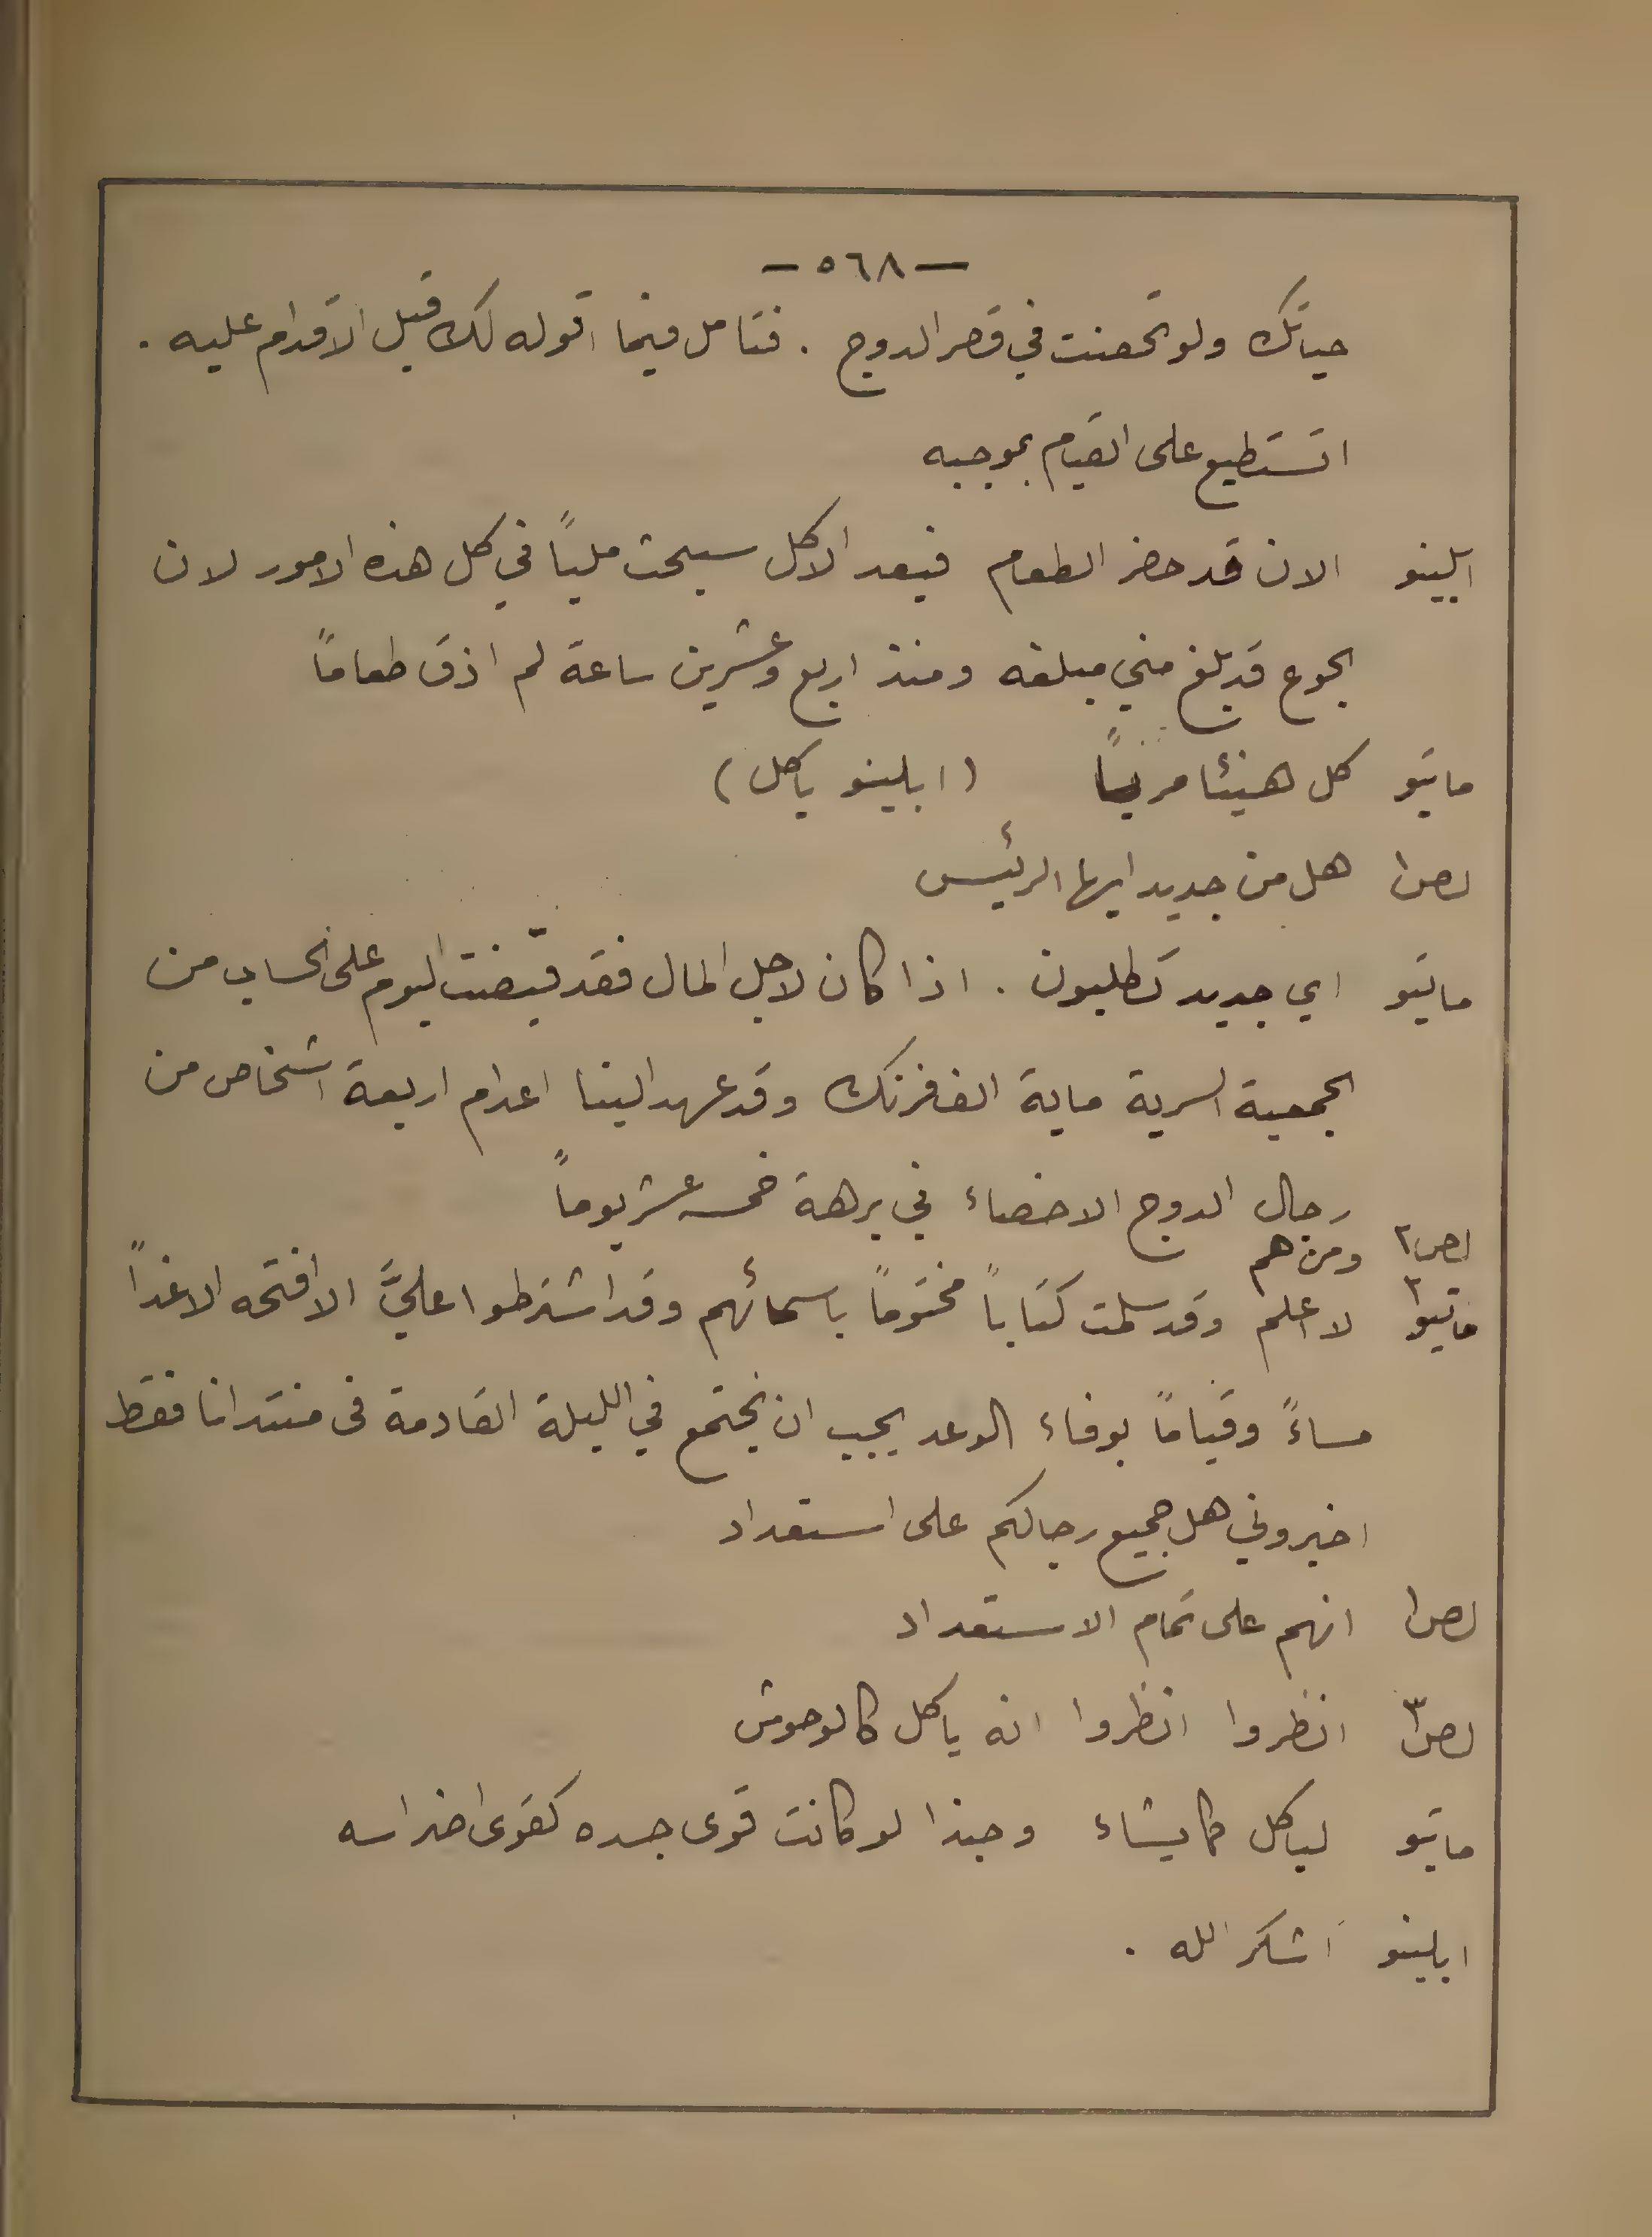 — ٥٦٨ —
حياتك ولو تحصنت في قصر الدوج . فتامل فيما اقوله لك قبل الاقدام عليه .
اتستطيع على القيام بموجبه
ابلينو الان قد حضر الطعام فبعد الاكل سيبحث ملياً في كل هذه الامور لان
الجوع قد بلغ مني مبلغه ومنذ اربع وعشرين ساعة لم اذق طعاماً
ماتيو كل هنيئا مريئاً (ابلينو ياكل)
لص١ هل من جديد ايها الرئيس
ماتيو اي جديد تطلبون . اذا كان لاجل المال فقد قبضت اليوم على الحساب من
الجمعية السرية ماية الف فرنك وقد عهد الينا اعدام اربعة اشخاص من
رجال الدوج الاخصاء في برهة خمسه عشر يوماً
لص٢ ومن هم
ماتيو لا اعلم وقد سلمت كتاباً مختوماً باسمائهم وقد اشترطوا عليَّ الا افتحه الا غداً
مساءً وقياماً بوفاء الوعد يجب ان نجتمع في الليلة القادمة في منتدانا فقط
اخبروني هل جميع رجالكم على استعداد
لص١ انهم على تمام الاستعداد
لص٣ انظروا انظروا انه ياكل كالوحوش
ماتيو لياكل كما يشاء وحبذا لو كانت قوى جسده كقوى اضراسه
ابلينو اشكر الله .